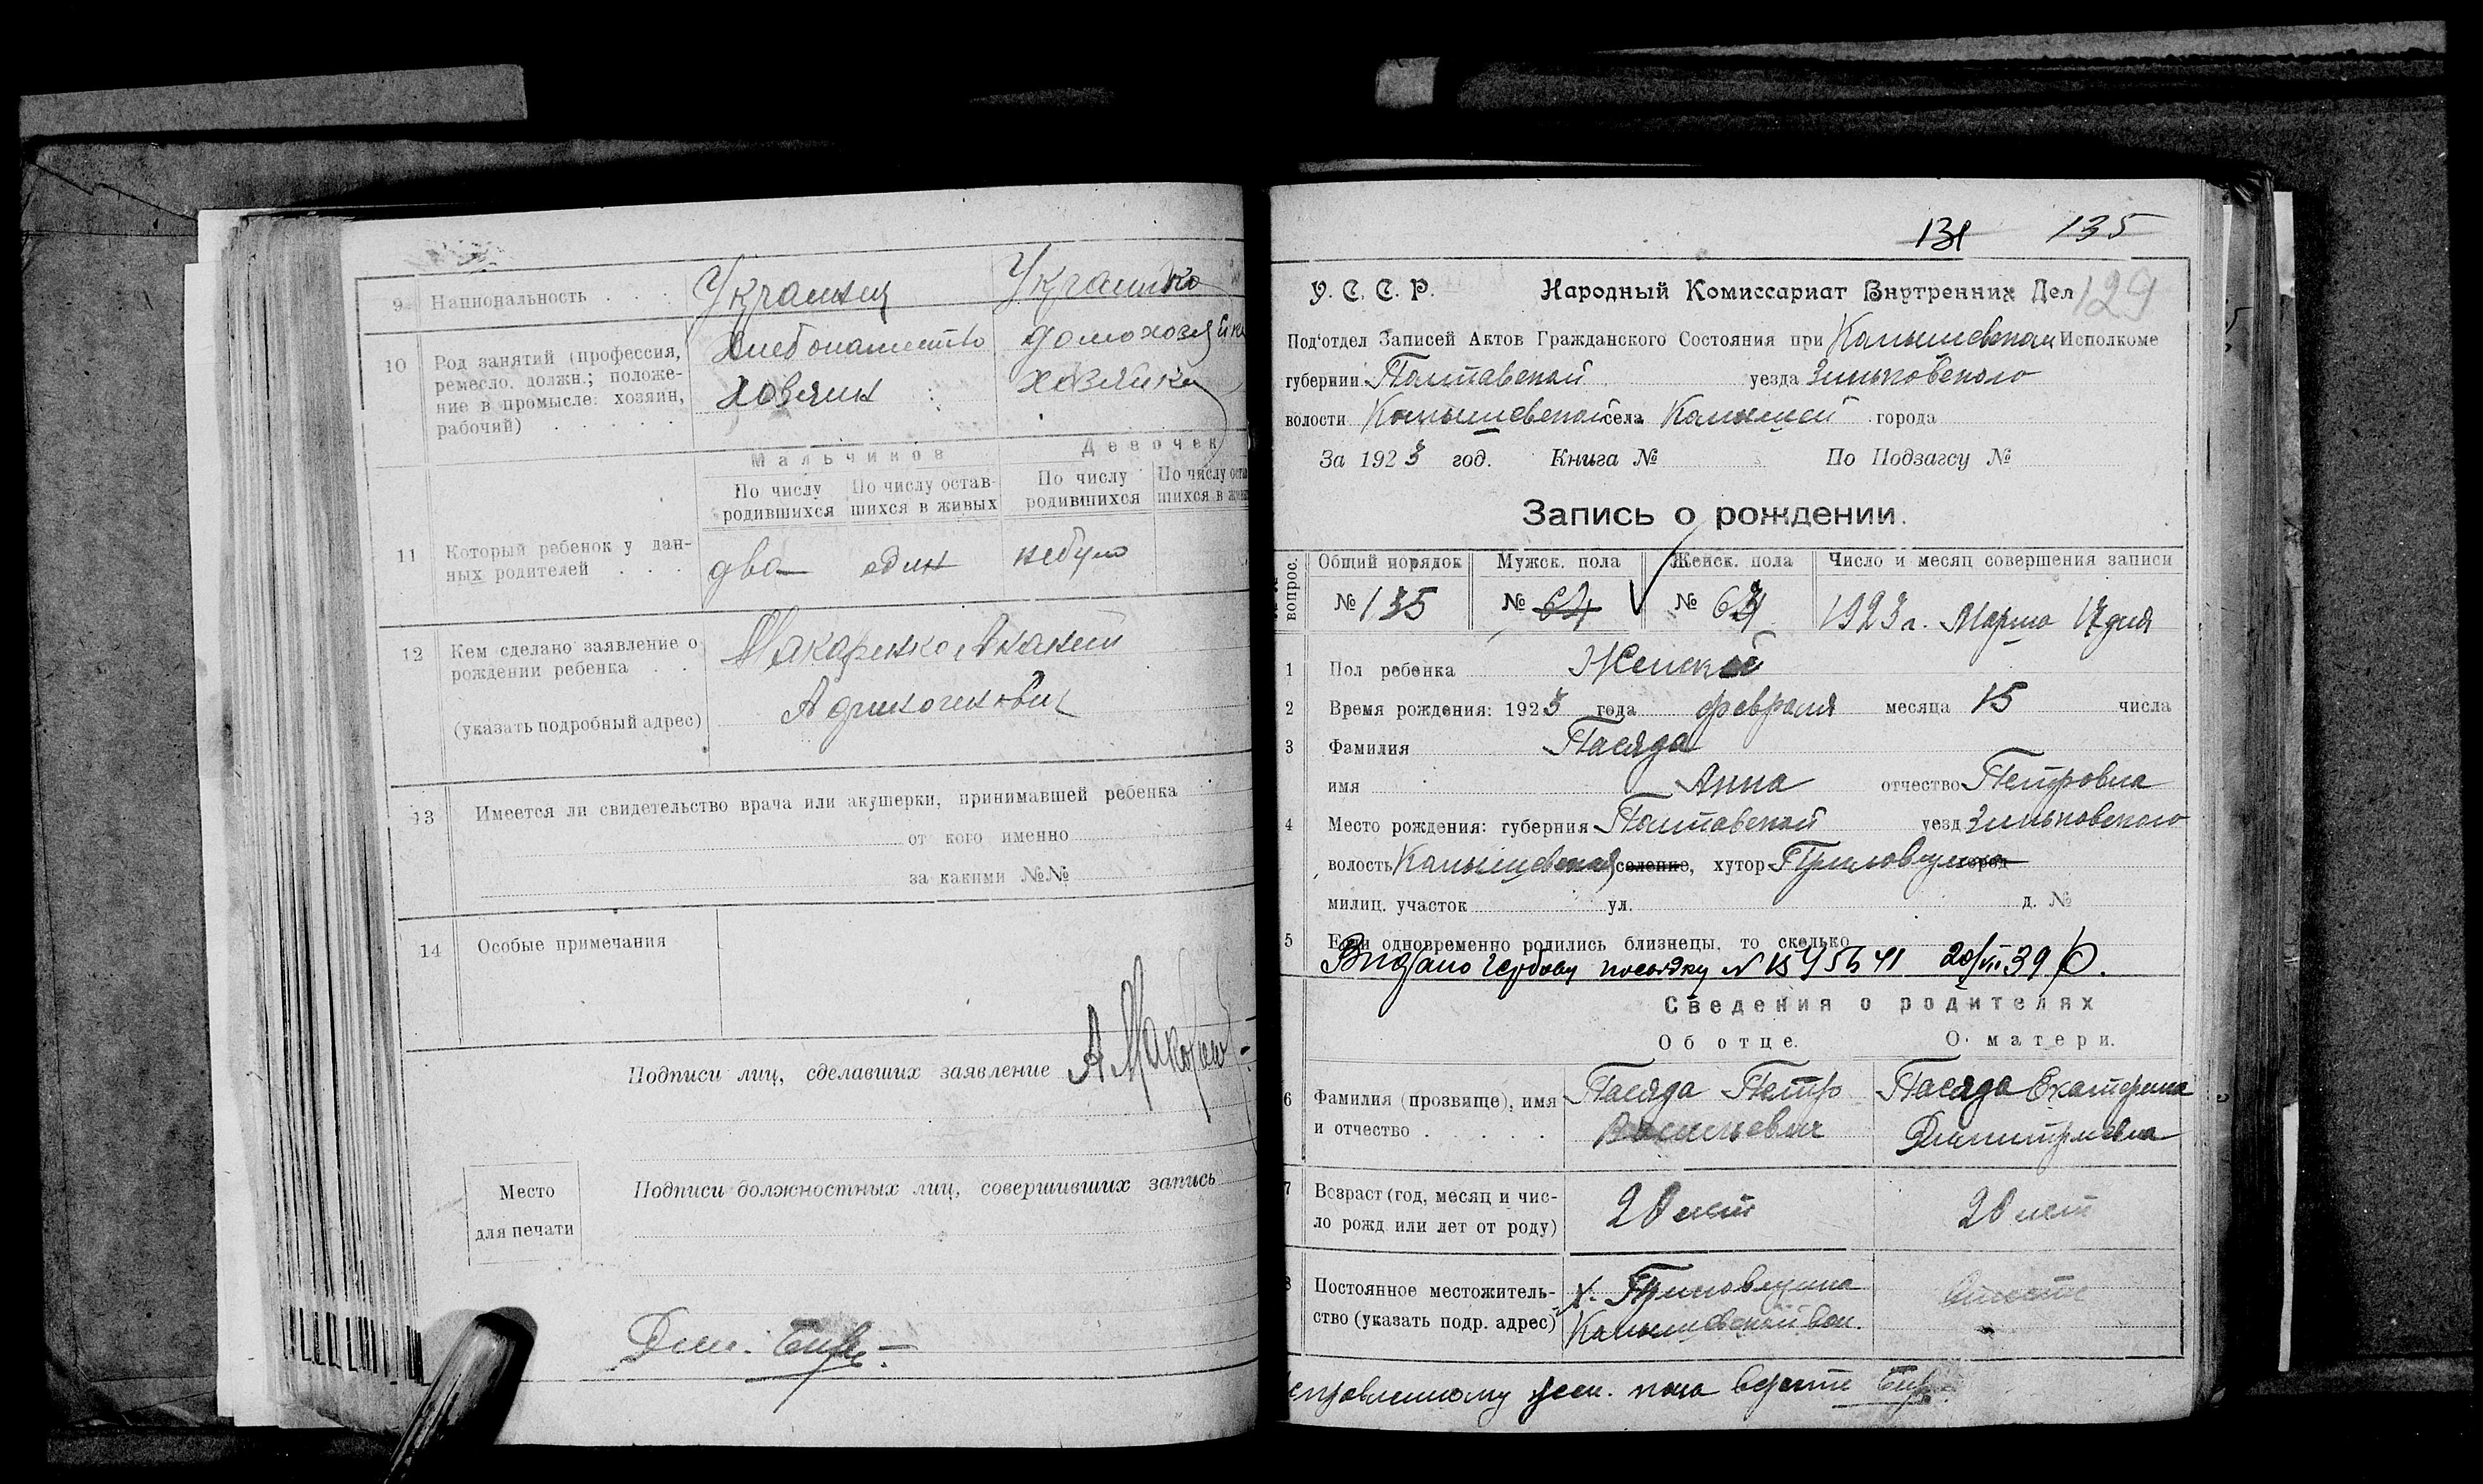 9 Национальность . . . Украинец Украинка
10 Род занятий (профессия, ремесло, должн.; положение в промысле: хозяин, рабочий) . . . . .
Хлебопашество домохозяйка
Хозяин хозяйка
Мальчиков Девочек
По числу родившихся По числу оставшихся в живых По числу родившихся По числу оста- шихся в жив
11 Который ребенок у дан-
ных родителей . . . два один небуло
12 Кем сделано заявление о
рождении ребенка . . Макаренко
(указать подробный адрес)
13 Имеется ли свидетельство врача или акушерки, принимавшей ребенка
от кого именно
за какими №№
14 Особые примечания
Подписи лиц, сделавших заявление А Макарен
Место
для печати
Подписи должностных лиц, совершивших запись
131 135
У. С. С. Р. Народный Комиссариат Внутренних Дел 129
Под'отдел Записей Актов Гражданского Состояния при Камышевском Исполкоме
губернии Полтавской уезда Зиньковского
волости Камышевской села Камышей города
За 1923 год. Книга № По Подзагсу №
Запись о рождении.
вопрос. Общий порядок Мужск. пола Женск. пола Число и месяц совершения записи
№ 135 № 64 № 64 1923 г. Марта 17 дня
1 Пол ребенка Женский
2 Время рождения: 1923 года февраля месяца 15 числа
3 Фамилия Пасяда
имя Анна отчество Петровна
4 Место рождения: губерния Полтавской уезд Зиньковского
волость Камышевская селение, хутор город
милиц. участок ул. д. №
5 Если одновременно родились близнецы, то сколько
Видано гербову 20/VII 39 р.
Сведения о родителях
Об отце. О матери.
6 Фамилия (прозвище), имя Пасяда Петро Пасяда Екатерина
и отчество . . . . Васильевич Димитриевна
7 Возраст (год, месяц и чис-
ло рожд или лет от роду) 20 лет 20 лет
8 Постоянное местожитель-
ство (указать подр. адрес) Камышевской вол.
жен. пола верить